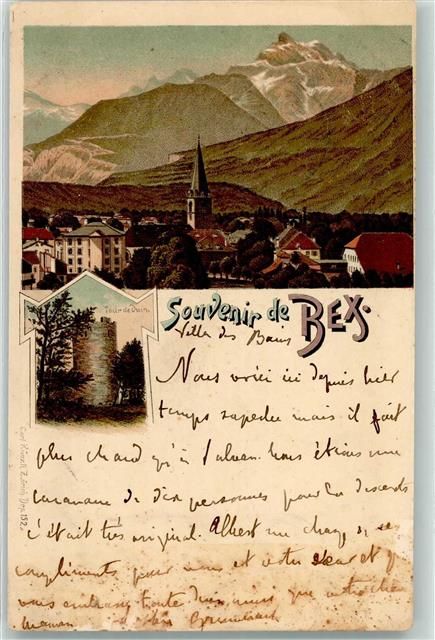 Tour de Duin.
Souvenir de BEX.
Villa des Bains
Nous voici ici depuis hier
temps superbe mais il fait
plus chaud qu'à Salvan. Nous étions une
caravane de dix personnes pour la descente
c'était très original. Albert me charge de ses
compliments pour vous et votre sœur et
vous embrasse toute
maman
Carl Künzli, Zürich Dep. 152